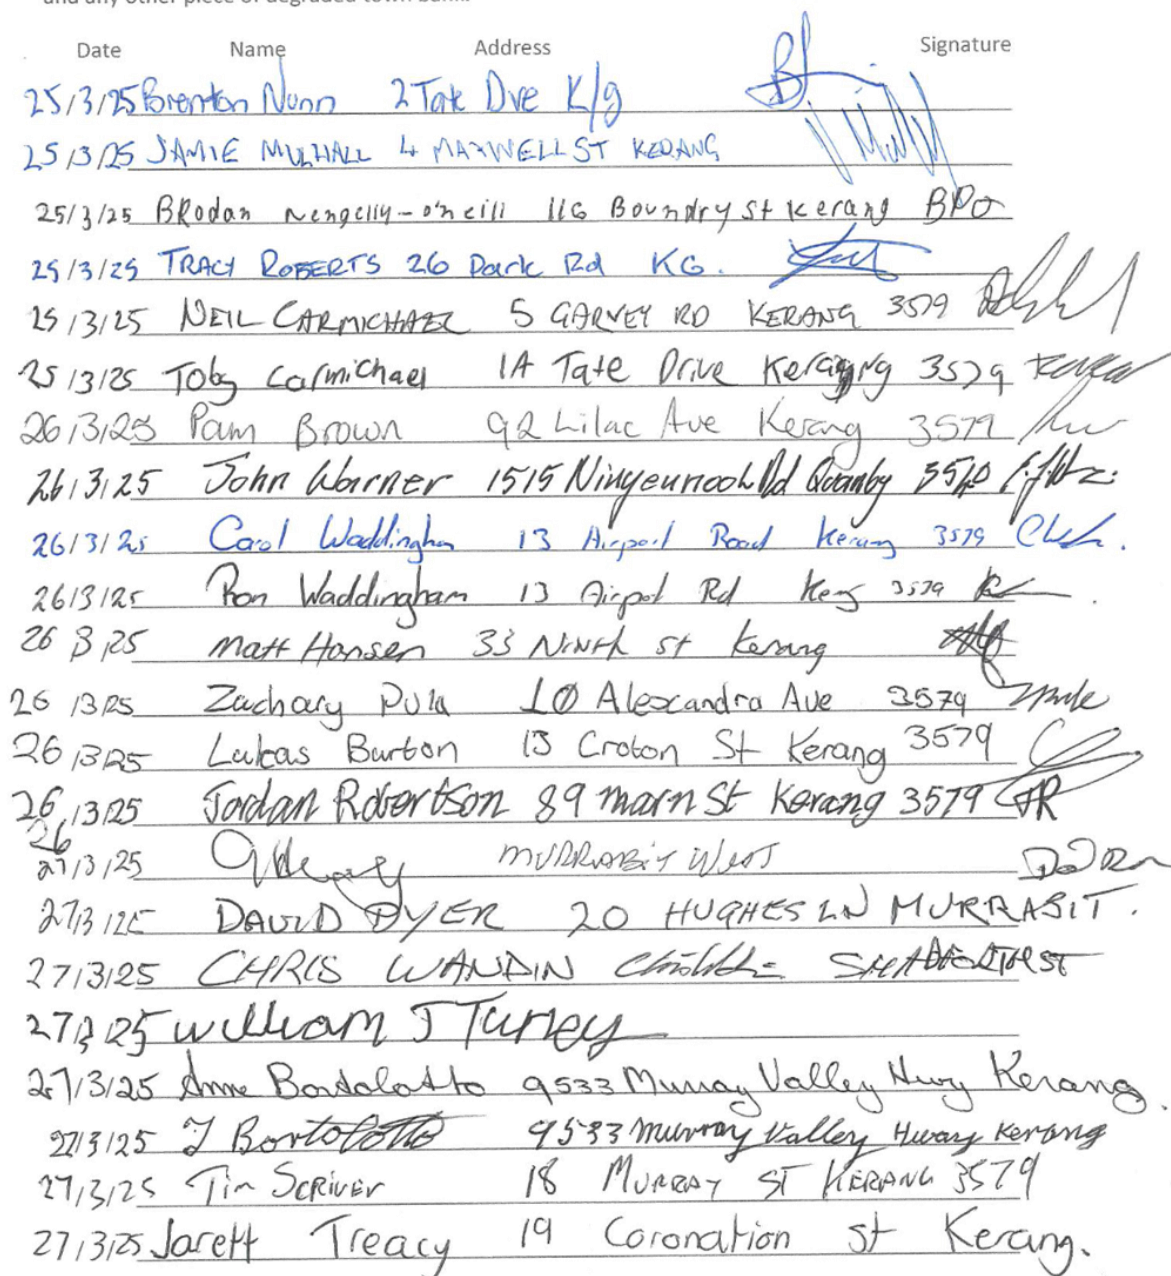 and any other piece of degraded town bank.
Date Name Address Signature
25/3/25 Brenton Nunn 2 Tate Dve K/g
25/3/25 JAMIE MULHALL 4 MAXWELL ST KERANG
25/3/25 BRodan Nengelly-o'neill 116 Boundry st Kerang BPO
25/3/25 TRACY ROBERTS 26 Park Rd KG.
25/3/25 NEIL CARMICHAEL 5 GARVEY RD KERANG 3579
25/3/25 Toby Carmichael 1A Tate Drive Kerang 3579
26/3/25 Pam Brown 92 Lilac Ave Kerang 3579
26/3/25 John Warner 1515 Rd Quamby 3540
26/3/25 Carol Waddingham 13 Airport Road Kerang 3579
26/3/25 Ron Waddingham 13 Airport Rd Kerang 3579
26/3/25 Matt Hansen 33 Ninth st Kerang
26/3/25 Zachary Pula 10 Alexandra Ave 3579
26/3/25 Lukas Burton 13 Croton St Kerang 3579
26/3/25 Jordan Robertson 89 marn St Kerang 3579 JR
26
27/3/25 MURRABIT WEST
27/3/25 DAVID DYER 20 HUGHES LN MURRABIT.
27/3/25 CHRIS WANDIN
27/3/25 William J Turney
27/3/25 Anne Bortolotto 9533 Murray Valley Hwy Kerang.
27/3/25 J Bortolotto 9533 Murray Valley Hway Kerang
27/3/25 Tim SCRIVER 18 MURRAY ST KERANG 3579
27/3/25 Jarett Treacy 19 Coronation st Kerang.